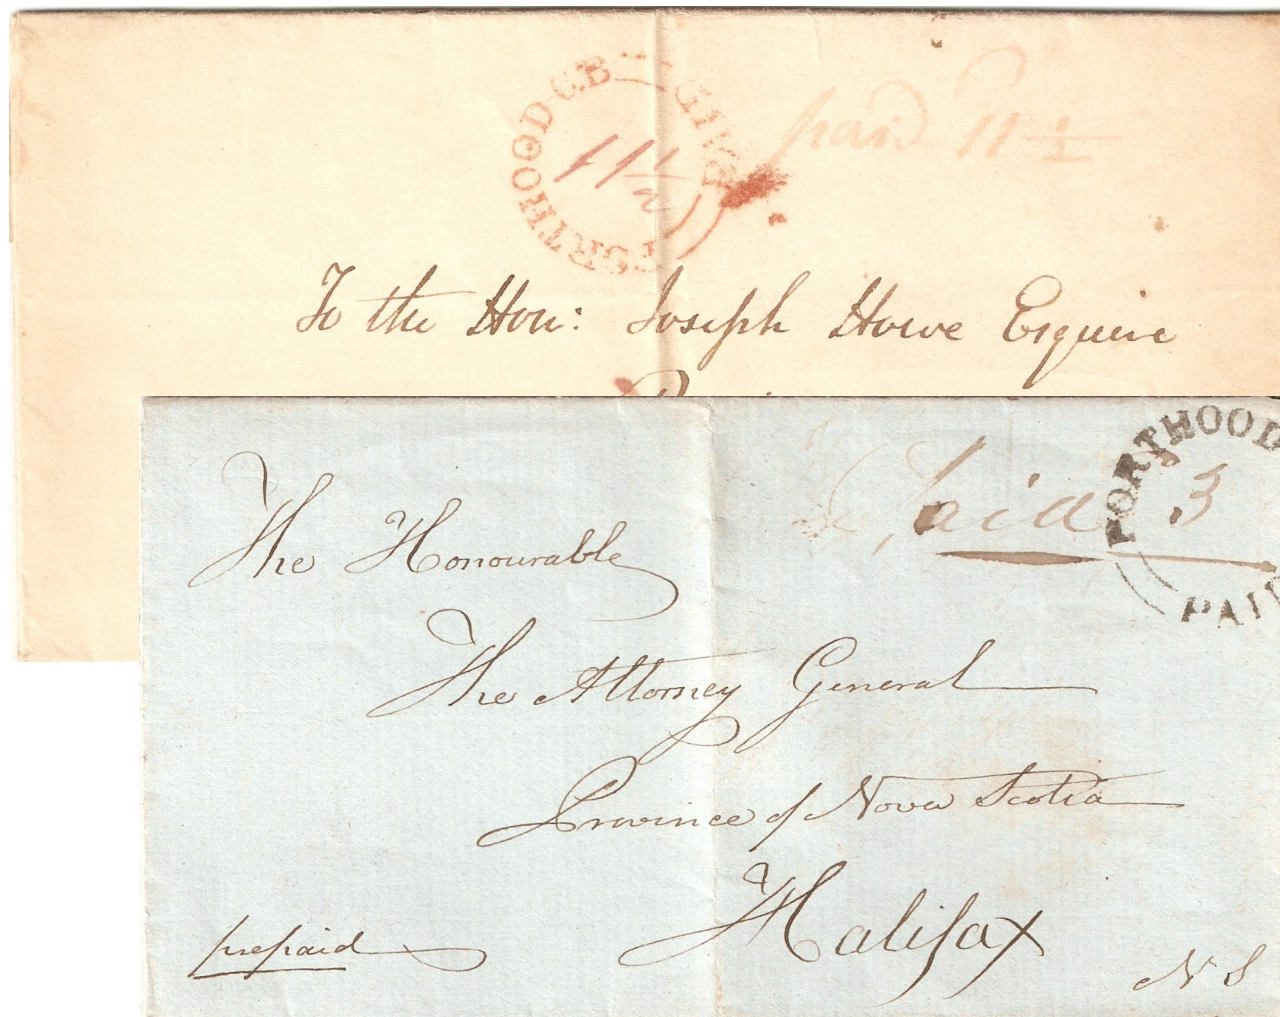 PORTHOOD·C.B PAID
11 1/2
paid 11 1/2
To the Hon: Joseph Howe Esquire
PORTHOOD
PAID
Paid 3
The Honourable
The Attorney General
Province of Nova Scotia
Halifax
prepaid
N S